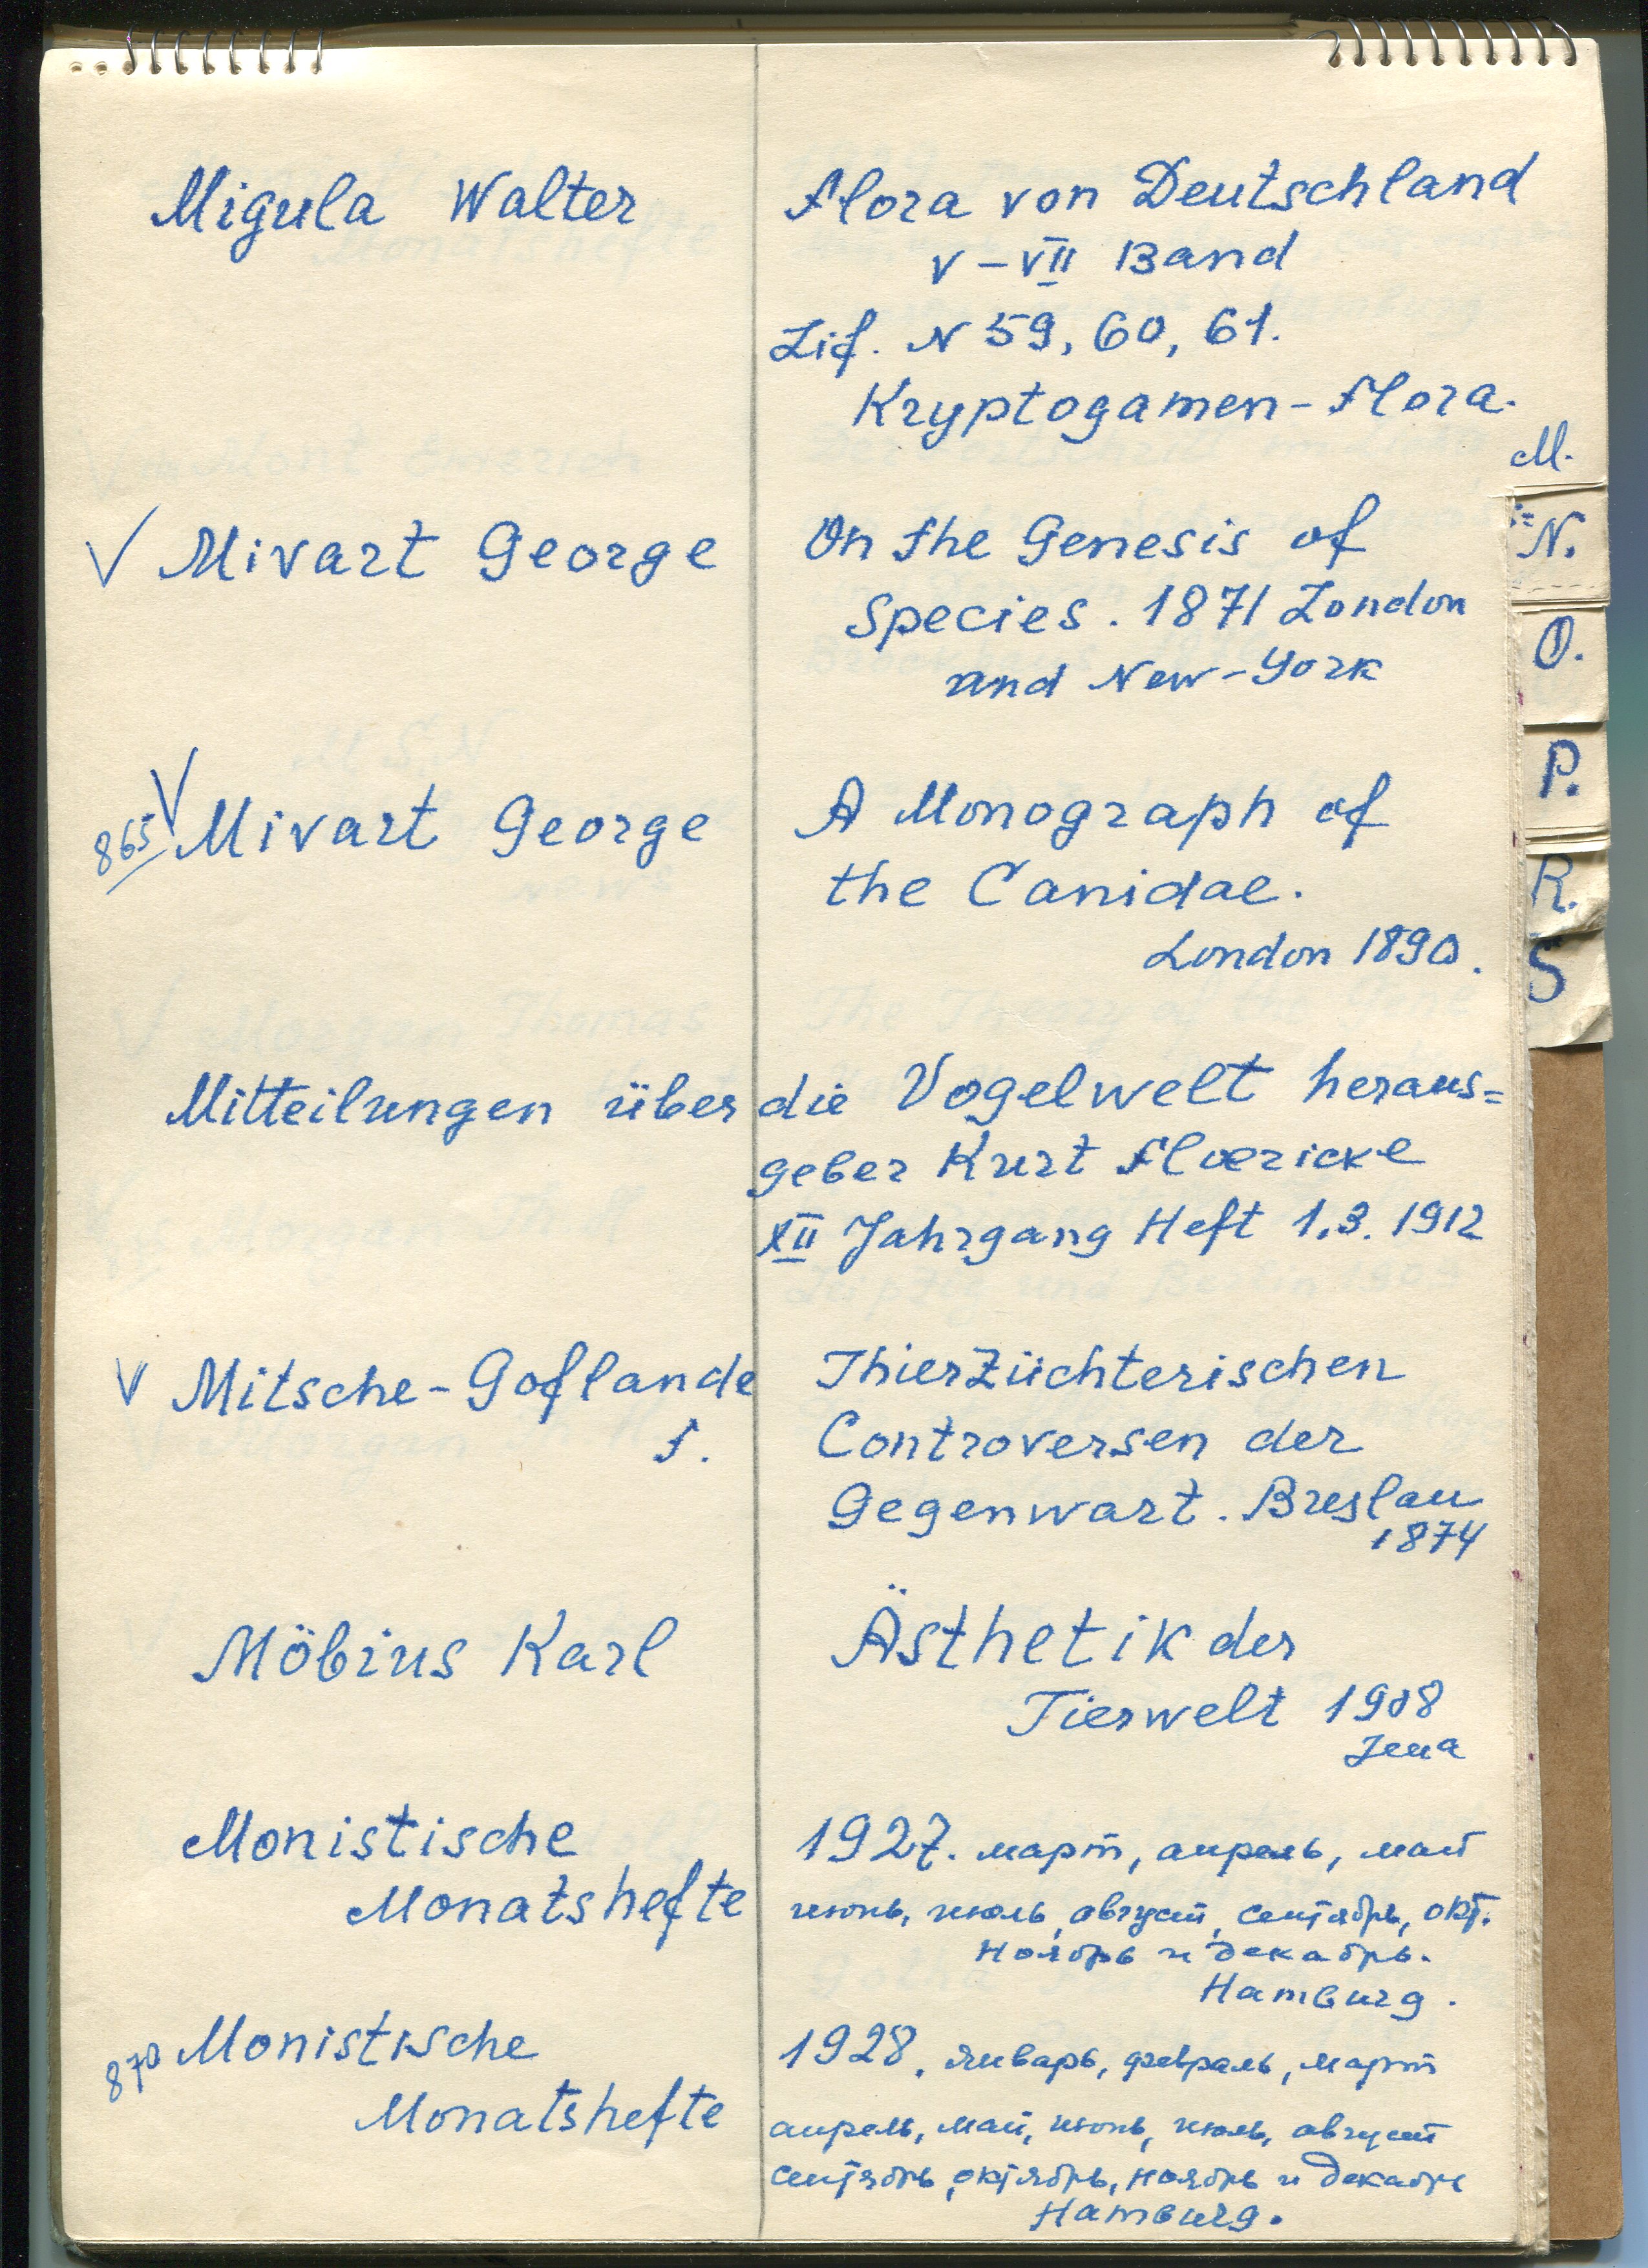 Migula Walter
Flora von Deutschland
V – VII Band
Lif. N 59, 60, 61.
Kryptogamen-Flora.
M.
√ Mivart George
On the Genesis of
Species. 1871 London
and New-York
N.
O.
865 √ Mivart George
A Monograph of
the Canidae.
London 1890.
P.
R.
S
Mitteilungen über die Vogelwelt heraus=
geber Kurt Floericke
XII Jahrgang Heft 1.3. 1912
√ Mitsche-Goflande
F.
Thierzüchterischen
Controversen der
Gegenwart. Breslau
1874
Möbius Karl
Ästhetik der
Tierwelt 1908
Jena
Monistische
Monatshefte
1927. март, апрель, май
июнь, июль, август, сентябрь, окт.
ноябрь и декабрь.
Hamburg.
870 Monistische
Monatshefte
1928. январь, февраль, март
апрель, май, июнь, июль, август
сентябрь, октябрь, ноябрь и декабрь
Hamburg.